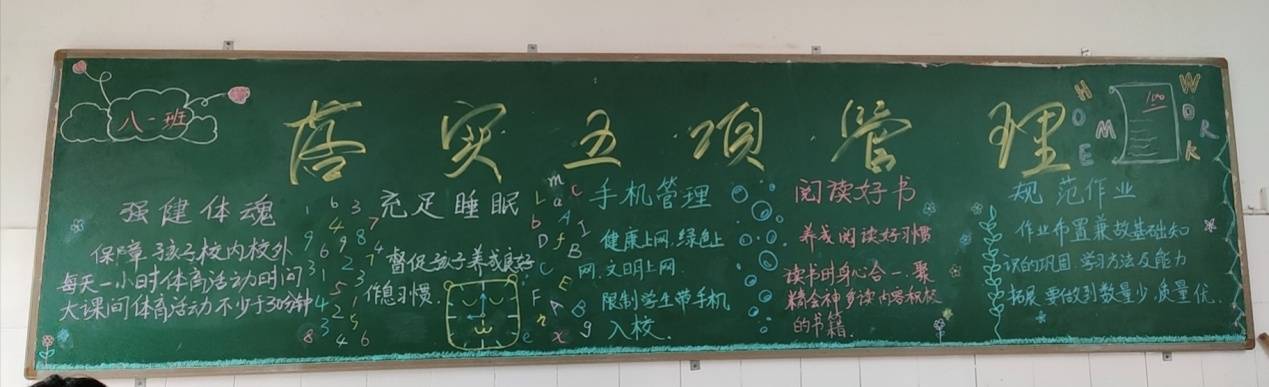 八一班
落实五项管理
HOME WORK
100
强健体魂
保障孩子校内校外
每天一小时体育活动时间
大课间体育活动不少于30分钟
充足睡眠
督促孩子养成良好
作息习惯.
手机管理
健康上网.绿色上
网.文明上网.
限制学生带手机
入校.
阅读好书
养成阅读好习惯
读书时身心合一.聚
精会神多读内容积极
的书籍.
规范作业
作业布置兼故基础知
识的巩固.学习方法及能力
拓展.要做到数量少.质量优.